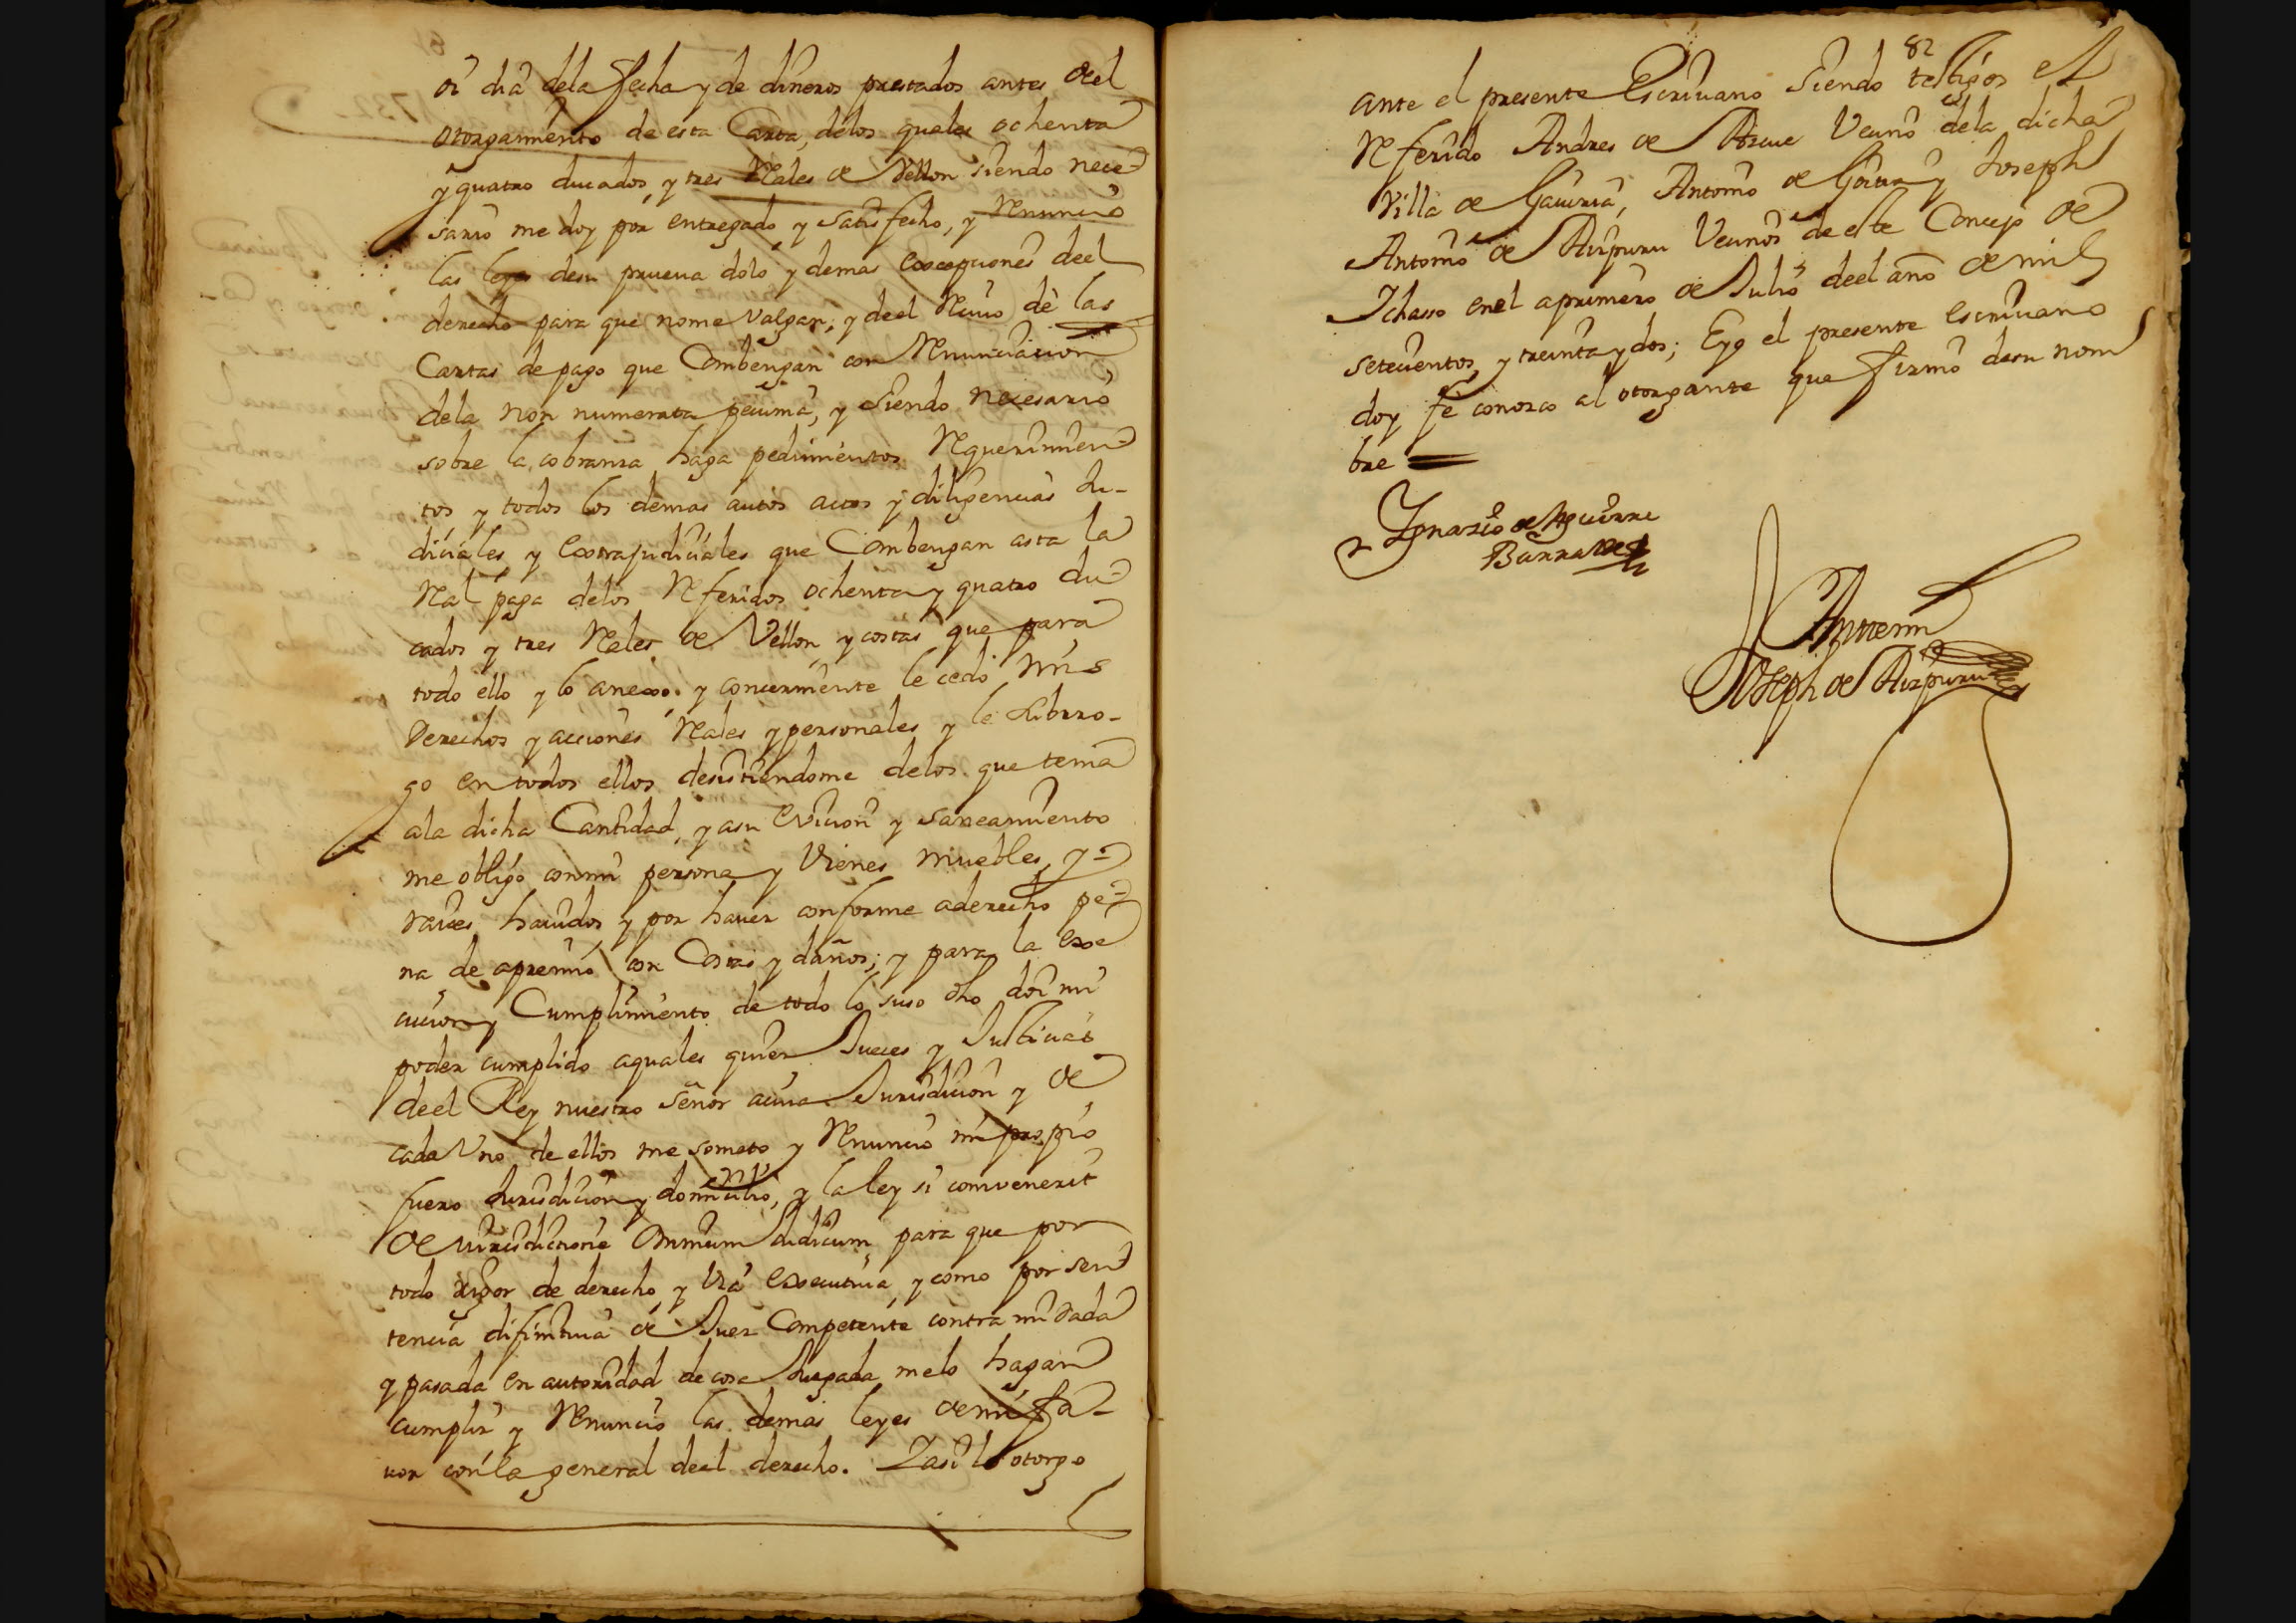 oi dia dela fecha y de dineros prestados antes deel
otorgamiento de esta Carta, delos quales ochenta
y quatro ducados, y tres Reales de Vellon siendo nece-
sario me doy por entregado y satisfecho, y Renuncio
las leyes desu prueua dolo y demas excepciones deel
derecho para que nome Valgan, y deel Reciuo dè las
Cartas de pago que Combengan con Renunciacion
dela non numerata pecunia, y siendo necesario
sobre la cobranza haga pedimientos Requerimien-
tos y todos los demas autos actos y diligencias Ju-
diciales y Extrajudiciales que Combengan asta la
Real paga delos Referidos ochenta y quatro du-
cados y tres Reales de Vellon, y costas que para
todo ello y lo anexo, y concerniente le cedo mis
Derechos y acciones Reales y personales y le subrro-
go en todos ellos desistiendome delos que tenia
ala dicha Cantidad, y asu Eviccion y saneamiento
me obligo conmi persona y Vienes muebles, y-
raices hauidos y por hauer conforme aderecho pe-
na de apremio con Costas y daños; y para la Exe
cucion y Cumplimiento de todo lo suso dho doi mi
poder cumplido aquales quier Jueces y Justicias
deel Rey nuestro señor acuia Jurisdicion y de
cada Vno de ellos me someto y Renuncio mi propio
fuero Jurisdicion y domicilio, y la ley si convenerit
de jurisdictione Omnium Judicum para que por
todo rigor de derecho y Via executiua, y como por sen-
tencia difinitiua de Juez Competente contra mi dada
y pasada en autoridad de cosa Juzgada melo hagan
cumplir y Renuncio las demas leyes demi fa-
uor conla general deel derecho. Y asi lo otorgo
82
ante el presente Escriuano siendo testigos el
Referido Andres de Arcue Vecino dela dicha
Villa de Gauiria, Antonio de Goitia y Joseph
Antonio de Aizpuru Vecinos de este Concejo de
Ichasso enel aprimero de Julio deel año de mil
setecientos, y treinta y dos; E yo el presente escriuano
doy fè conozco al otorgante que firmò desu nom
bre
Ygnazio de Aguirre
Barrae
Antemi
Joseph de Aizpuru